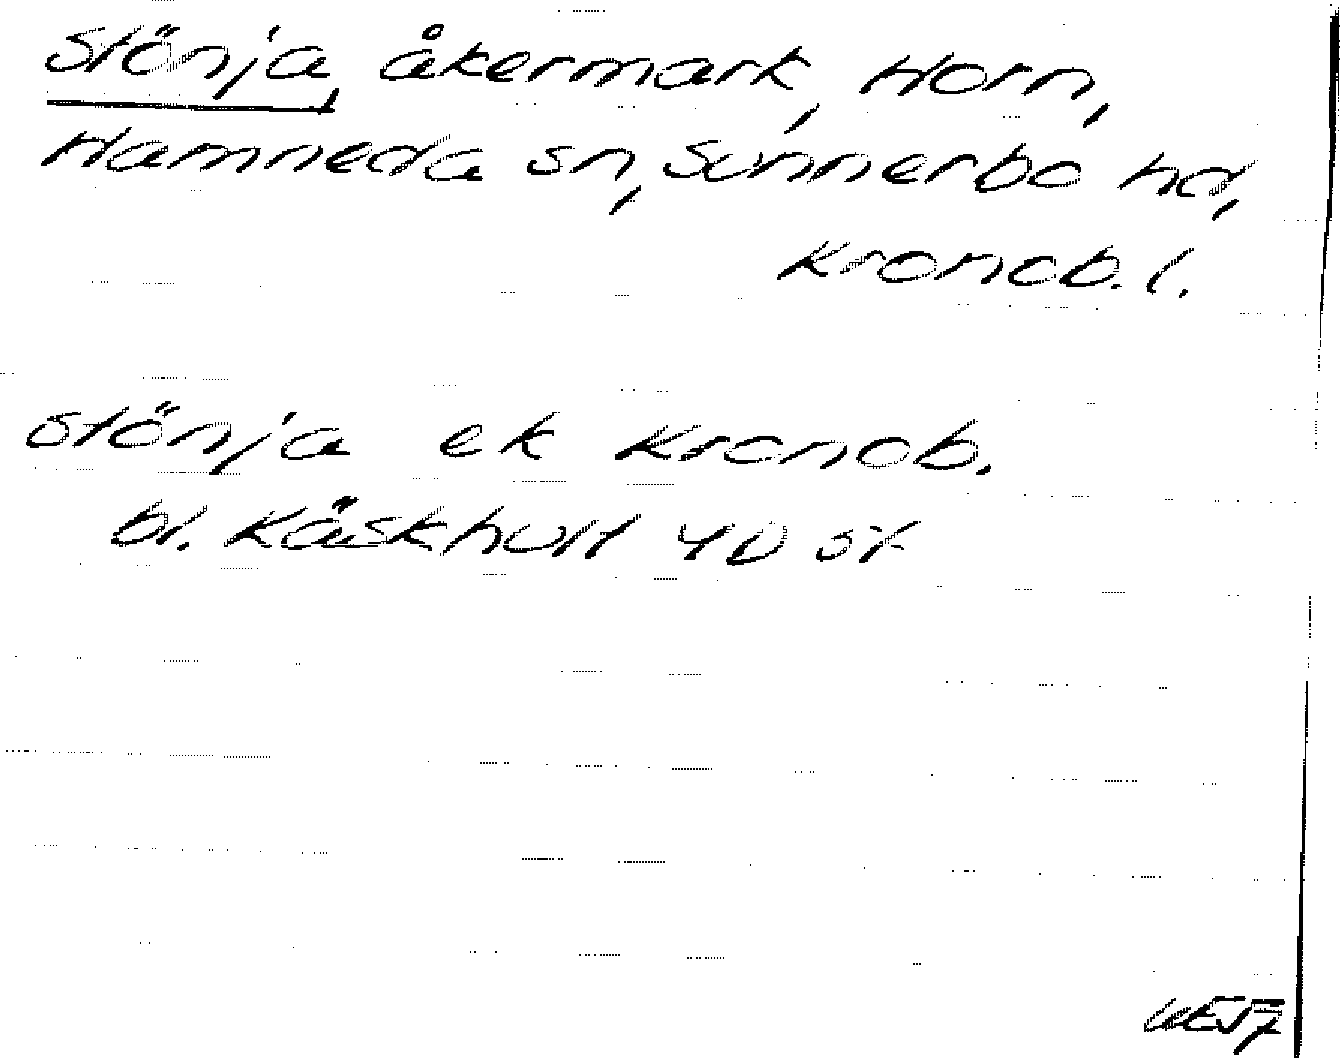 Stönja, åkermark, Horn,
Hamneda sn, Sunnerbo hd,
Kronob. l.
Stönja ek Kronob.
bl. Kåskhult 4D st